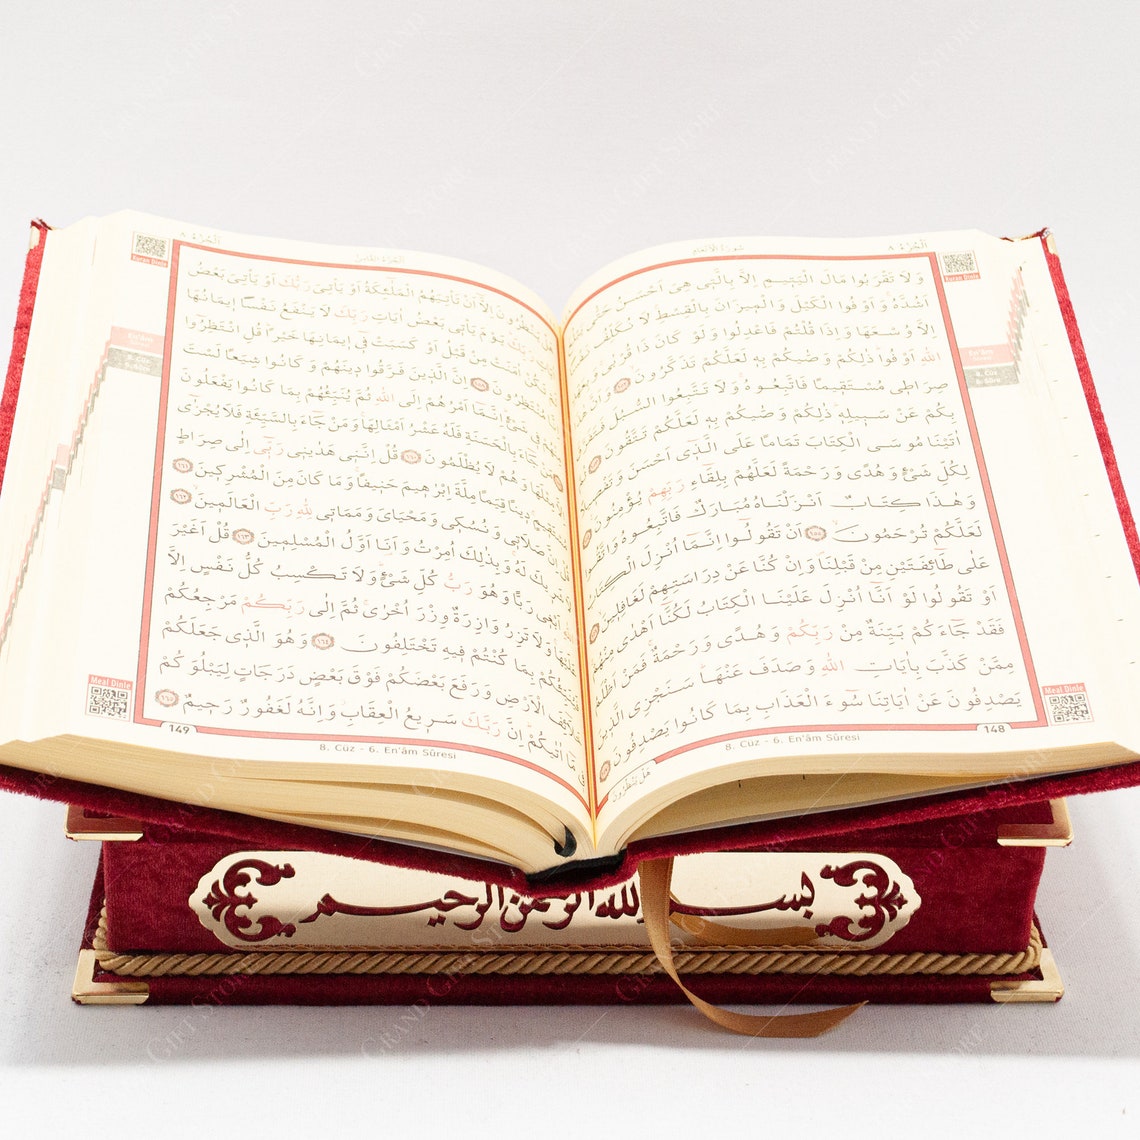 الجزء ٨ سورة الأنعام
Kuran Dinle
وَلَا تَقْرَبُوا مَالَ الْيَتِيمِ اِلَّا بِالَّتِى هِىَ اَحْسَنُ حَتّٰى
اَشُدَّهُ وَاَوْفُوا الْكَيْلَ وَالْمِيزَانَ بِالْقِسْطِ لَا نُكَلِّفُ
اِلَّا وُسْعَهَا وَاِذَا قُلْتُمْ فَاعْدِلُوا وَلَوْ كَانَ ذَا قُرْبٰى
اللّٰهِ اَوْفُوا ذٰلِكُمْ وَصّٰيكُمْ بِهِ لَعَلَّكُمْ تَذَكَّرُونَ ١٥٢ وَاَنَّ
صِرَاطِى مُسْتَقِيمًا فَاتَّبِعُوهُ وَلَا تَتَّبِعُوا السُّبُلَ فَتَفَرَّقَ
بِكُمْ عَنْ سَبِيلِهِ ذٰلِكُمْ وَصّٰيكُمْ بِهِ لَعَلَّكُمْ تَتَّقُونَ
اٰتَيْنَا مُوسَى الْكِتَابَ تَمَامًا عَلَى الَّذِى اَحْسَنَ وَتَفْصِيلًا
لِكُلِّ شَىْءٍ وَهُدًى وَرَحْمَةً لَعَلَّهُمْ بِلِقَاءِ رَبِّهِمْ يُؤْمِنُونَ
وَهٰذَا كِتَابٌ اَنْزَلْنَاهُ مُبَارَكٌ فَاتَّبِعُوهُ وَاتَّقُوا
لَعَلَّكُمْ تُرْحَمُونَ ١٥٥ اَنْ تَقُولُوا اِنَّمَا اُنْزِلَ الْكِتَابُ
عَلٰى طَائِفَتَيْنِ مِنْ قَبْلِنَا وَاِنْ كُنَّا عَنْ دِرَاسَتِهِمْ لَغَافِلِينَ
اَوْ تَقُولُوا لَوْ اَنَّا اُنْزِلَ عَلَيْنَا الْكِتَابُ لَكُنَّا اَهْدٰى مِنْهُمْ
فَقَدْ جَاءَكُمْ بَيِّنَةٌ مِنْ رَبِّكُمْ وَهُدًى وَرَحْمَةٌ فَمَنْ اَظْلَمُ
مِمَّنْ كَذَّبَ بِاٰيَاتِ اللّٰهِ وَصَدَفَ عَنْهَا سَنَجْزِى الَّذِينَ
يَصْدِفُونَ عَنْ اٰيَاتِنَا سُوءَ الْعَذَابِ بِمَا كَانُوا يَصْدِفُونَ
هَلْ يَنْظُرُونَ
En'âm
8. Cüz
6. Sûre
Meal Dinle
148
8. Cüz - 6. En'âm Sûresi
الجزء الثامن الجزء ٨
Kuran Dinle
يَنْظُرُونَ اِلَّا اَنْ تَأْتِيَهُمُ الْمَلٰئِكَةُ اَوْ يَأْتِىَ رَبُّكَ اَوْ يَأْتِىَ بَعْضُ
رَبِّكَ يَوْمَ يَأْتِى بَعْضُ اٰيَاتِ رَبِّكَ لَا يَنْفَعُ نَفْسًا اِيمَانُهَا
تَكُنْ اٰمَنَتْ مِنْ قَبْلُ اَوْ كَسَبَتْ فِى اِيمَانِهَا خَيْرًا قُلِ انْتَظِرُوا
مُنْتَظِرُونَ ١٥٨ اِنَّ الَّذِينَ فَرَّقُوا دِينَهُمْ وَكَانُوا شِيَعًا لَسْتَ
فِى شَىْءٍ اِنَّمَا اَمْرُهُمْ اِلَى اللّٰهِ ثُمَّ يُنَبِّئُهُمْ بِمَا كَانُوا يَفْعَلُونَ
مَنْ جَاءَ بِالْحَسَنَةِ فَلَهُ عَشْرُ اَمْثَالِهَا وَمَنْ جَاءَ بِالسَّيِّئَةِ فَلَا يُجْزٰى
مِثْلَهَا وَهُمْ لَا يُظْلَمُونَ ١٦٠ قُلْ اِنَّنِى هَدٰينِى رَبِّى اِلٰى صِرَاطٍ
مُسْتَقِيمٍ دِينًا قِيَمًا مِلَّةَ اِبْرٰهِيمَ حَنِيفًا وَمَا كَانَ مِنَ الْمُشْرِكِينَ ١٦١
اِنَّ صَلَاتِى وَنُسُكِى وَمَحْيَاىَ وَمَمَاتِى لِلّٰهِ رَبِّ الْعَالَمِينَ ١٦٢
شَرِيكَ لَهُ وَبِذٰلِكَ اُمِرْتُ وَاَنَا اَوَّلُ الْمُسْلِمِينَ ١٦٣ قُلْ اَغَيْرَ
اللّٰهِ اَبْغِى رَبًّا وَهُوَ رَبُّ كُلِّ شَىْءٍ وَلَا تَكْسِبُ كُلُّ نَفْسٍ اِلَّا
عَلَيْهَا وَلَا تَزِرُ وَازِرَةٌ وِزْرَ اُخْرٰى ثُمَّ اِلٰى رَبِّكُمْ مَرْجِعُكُمْ
فَيُنَبِّئُكُمْ بِمَا كُنْتُمْ فِيهِ تَخْتَلِفُونَ ١٦٤ وَهُوَ الَّذِى جَعَلَكُمْ
خَلَائِفَ الْاَرْضِ وَرَفَعَ بَعْضَكُمْ فَوْقَ بَعْضٍ دَرَجَاتٍ لِيَبْلُوَكُمْ
فِى مَا اٰتٰيكُمْ اِنَّ رَبَّكَ سَرِيعُ الْعِقَابِ وَاِنَّهُ لَغَفُورٌ رَحِيمٌ ١٦٥
En'âm
Meal Dinle
149
8. Cüz - 6. En'âm Sûresi
بسم الله الرحمن الرحيم
GRAND GIFT STORE